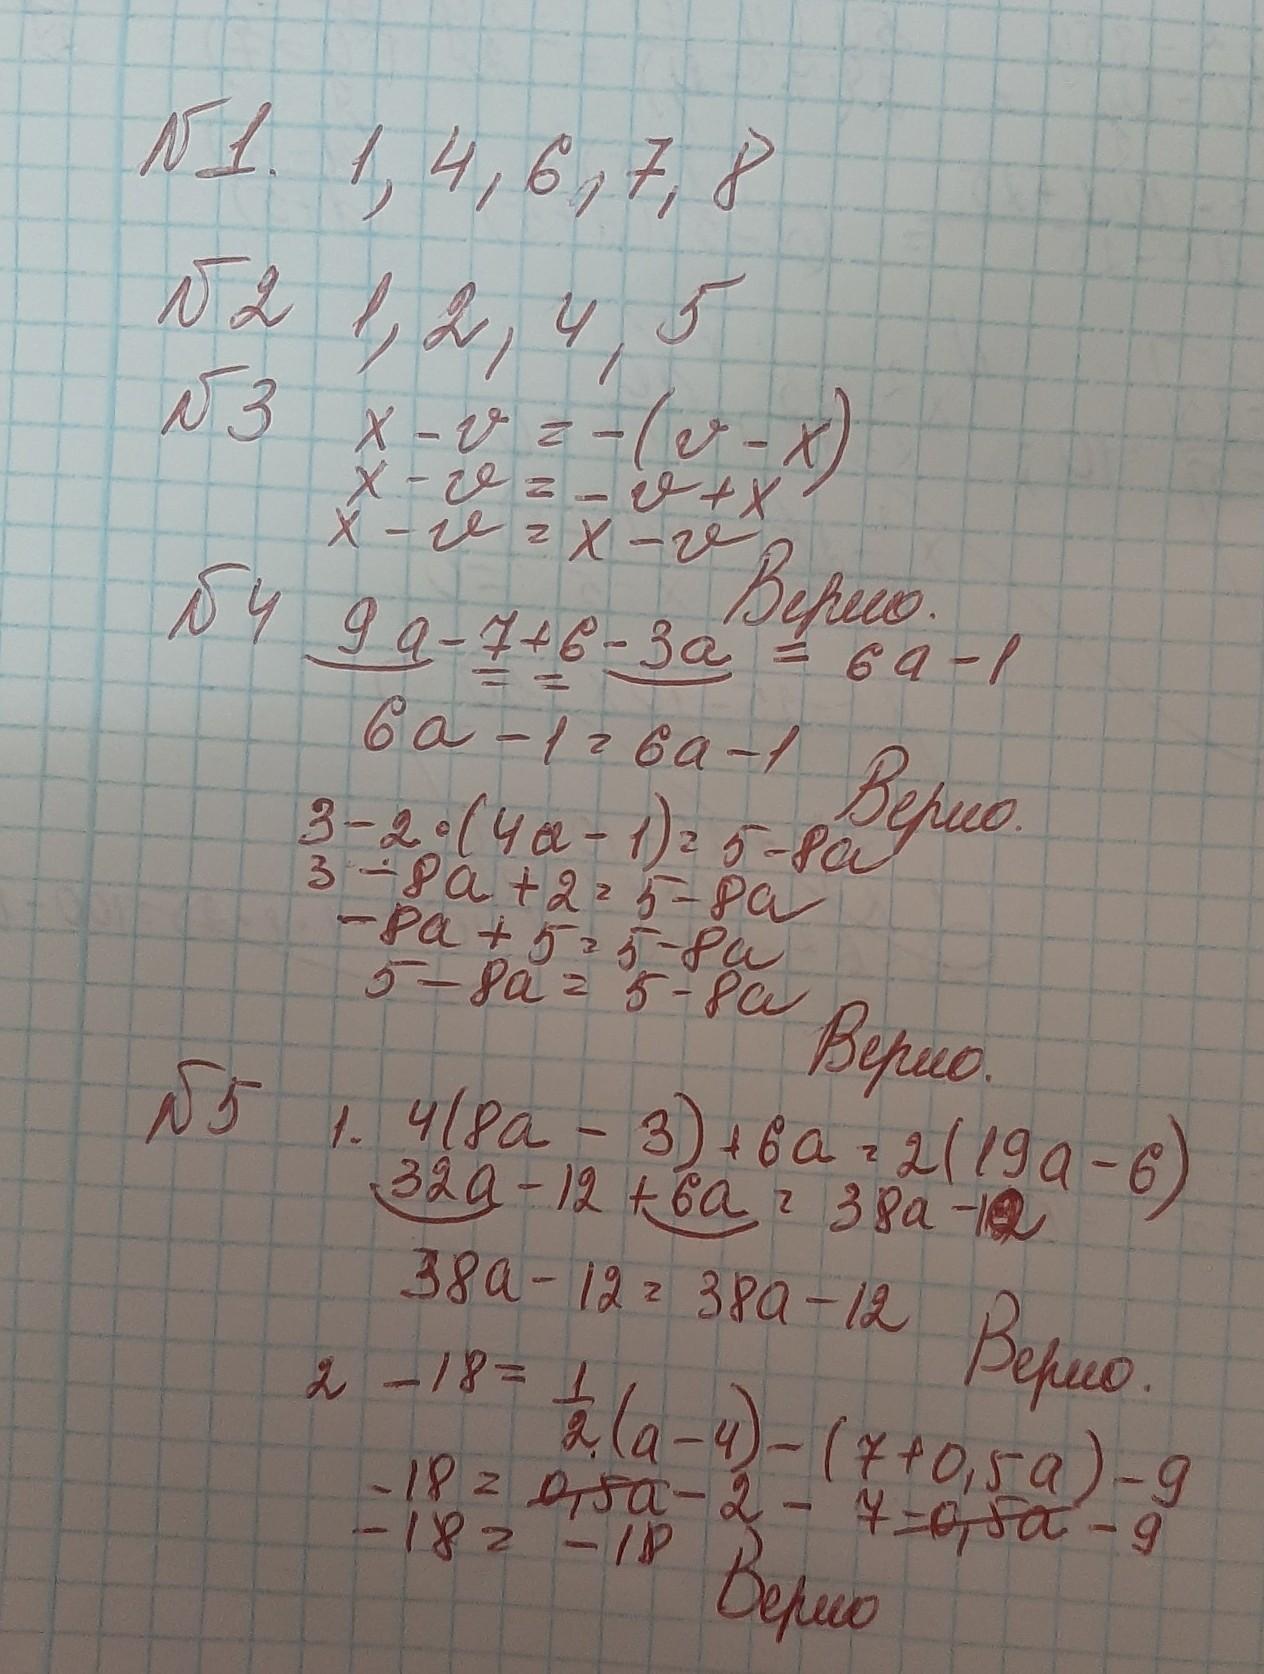 №1. 1, 4, 6, 7, 8
№2 1, 2, 4, 5
№3 x - v = -(v - x)
x - v = - v + x
x - v = x - v
Верно.
№4 9a - 7 + 6 - 3a = 6a - 1
6a - 1 = 6a - 1
Верно.
3 - 2·(4a - 1) = 5 - 8a
3 - 8a + 2 = 5 - 8a
-8a + 5 = 5 - 8a
5 - 8a = 5 - 8a
Верно.
№5 1. 4(8a - 3) + 6a = 2(19a - 6)
32a - 12 + 6a = 38a - 12
38a - 12 = 38a - 12
Верно.
2 -18 = 1/2·(a - 4) - (7 + 0,5a) - 9
-18 = 0,5a - 2 - 7 - 0,5a - 9
-18 = -18
Верно